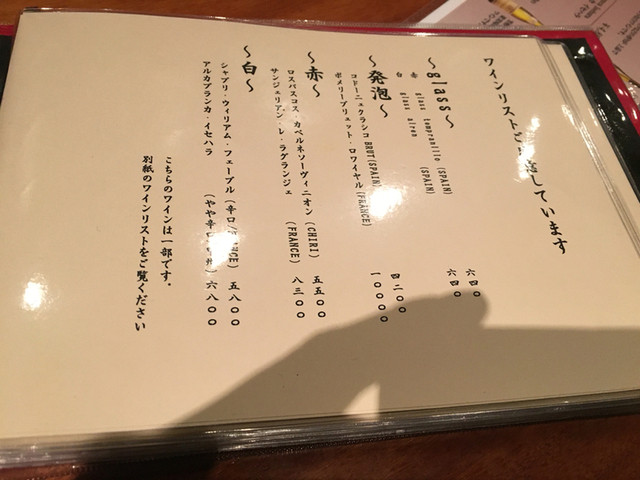 ワインリストご しています
～glass～
赤 glass tempranillo (SPAIN) 六四〇
白 glass airen (SPAIN) 六四〇
～発泡～
コドーニュクラシコ BRUT(SPAIN) 四二〇〇
ポメリーブリュット・ロワイヤル(FRANCE) 一〇〇〇〇
～赤～
ロスバスコス・カベルネソーヴィニオン (CHIRI) 五五〇〇
サンジェリアン・レ・ラグランジェ (FRANCE) 八三〇〇
～白～
シャブリ・ウィリアム・フェーブル (辛口/FRANCE) 五八〇〇
アルカブランカ・イセハラ (やや辛口 州) 六八〇〇
こちらのワインは一部です。
別紙のワインリストをご覧ください